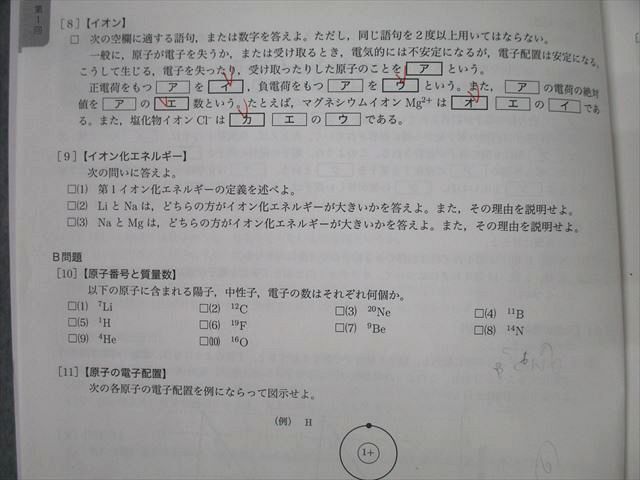 第1回
[8]【イオン】
□ 次の空欄に適する語句，または数字を答えよ。ただし，同じ語句を2度以上用いてはならない。
一般に，原子が電子を失うか，または受け取るとき，電気的には不安定になるが，電子配置は安定になる。
こうして生じる，電子を失ったり，受け取ったりした原子のことを ア という。
正電荷をもつ ア を イ ，負電荷をもつ ア を ウ という。また， ア の電荷の絶対
値を ア の エ 数という。たとえば，マグネシウムイオン Mg²⁺ は オ エ の イ であ
る。また，塩化物イオン Cl⁻ は カ エ の ウ である。
[9]【イオン化エネルギー】
次の問いに答えよ。
□(1) 第1イオン化エネルギーの定義を述べよ。
□(2) Li と Na は，どちらの方がイオン化エネルギーが大きいかを答えよ。また，その理由を説明せよ。
□(3) Na と Mg は，どちらの方がイオン化エネルギーが大きいかを答えよ。また，その理由を説明せよ。
B問題
[10]【原子番号と質量数】
以下の原子に含まれる陽子，中性子，電子の数はそれぞれ何個か。
□(1) ⁷Li □(2) ¹²C □(3) ²⁰Ne □(4) ¹¹B
□(5) ¹H □(6) ¹⁹F □(7) ⁹Be □(8) ¹⁴N
□(9) ⁴He □(10) ¹⁶O
[11]【原子の電子配置】
次の各原子の電子配置を例にならって図示せよ。
（例） H
1+